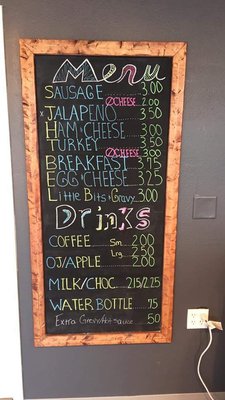 Menu
SAUSAGE 3.00
ØCHEESE 2.00
x JALAPEÑO 3.50
HAM & CHEESE 3.00
TURKEY 3.50
ØCHEESE 3.00
BREAKFAST 3.75
EGG & CHEESE 3.25
LITTLE BITS & GRAVY 3.00
Drinks
COFFEE Sm 2.00
Lrg 2.50
OJ/APPLE 2.00
MILK/CHOC 2.15/2.25
WATER BOTTLE .75
EXTRA GRAVY/HOT SAUCE .50